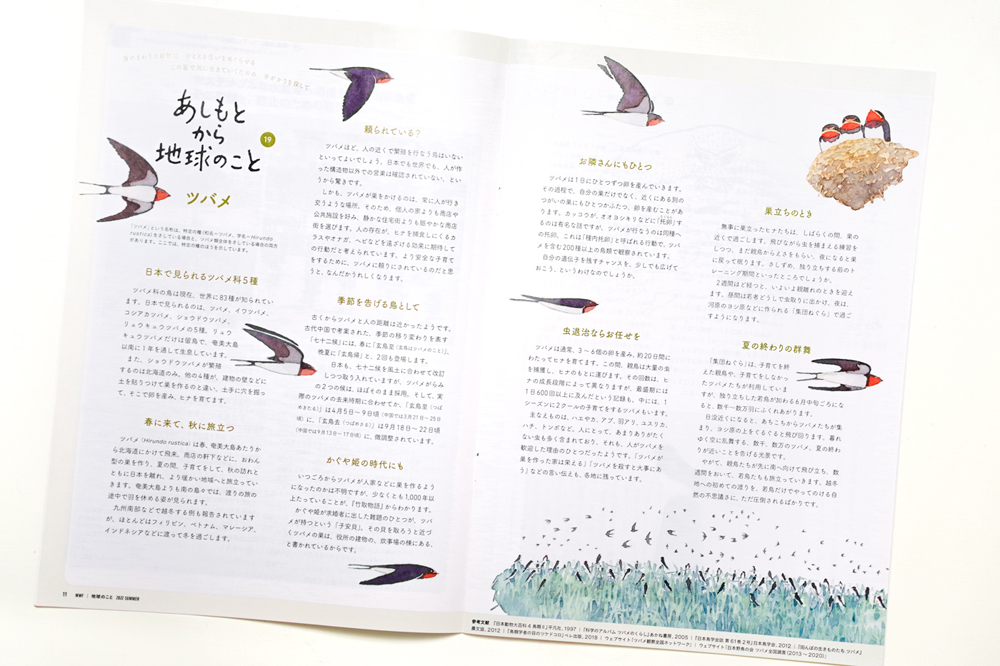 あしもと
から
地球のこと
19
ツバメ
「ツバメ」という名前は、特定の種(和名=ツバメ、学名=Hirundo
rustica)をさしている場合と、ツバメ類全体をさしている場合の両方
があります。ここでは、特定の種のほうを示しています。
日本で見られるツバメ科5種
ツバメ科の鳥は現在、世界に83種が知られてい
ます。日本で見られるのは、ツバメ、イワツバメ、
コシアカツバメ、ショウドウツバメ、
リュウキュウツバメの5種。リュウ
キュウツバメだけは留鳥で、奄美大島
以南に1年を通して生息しています。
また、ショウドウツバメが繁殖
するのは北海道のみ。他の4種が、建物の壁などに
土を貼りつけて巣を作るのと違い、土手に穴を掘っ
て、そこで卵を産み、ヒナを育てます。
春に来て、秋に旅立つ
ツバメ(Hirundo rustica)は春、奄美大島あたりか
ら北海道にかけて飛来。商店の軒下などに、おわん
型の巣を作り、夏の間、子育てをして、秋の訪れと
ともに日本を離れ、より暖かい地域へと旅立ってい
きます。奄美大島よりも南の島々では、渡りの旅の
途中で羽を休める姿が見られます。
九州南部などで越冬する例も報告されています
が、ほとんどはフィリピン、ベトナム、マレーシア、
インドネシアなどに渡って冬を過ごします。
頼られている?
ツバメほど、人の近くで繁殖を行なう鳥はいない
といってよいでしょう。日本でも世界でも、人が作
った構造物以外での営巣は確認されていない、とい
うから驚きです。
しかも、ツバメが巣をかけるのは、常に人が行き
交うような場所。そのため、個人の家よりも商店や
公共施設を好み、静かな住宅街よりも賑やかな商店
街を選びます。人の存在が、ヒナを捕食しにくるカ
ラスやオナガ、ヘビなどを遠ざける効果に期待して
の行動だと考えられています。より安全な子育て
をするために、ツバメに頼りにされているのだと思
うと、なんだかうれしくなります。
季節を告げる鳥として
古くからツバメと人の距離は近かったようです。
古代中国で考案された、季節の移り変わりを表す
「七十二候」には、春に「玄鳥至(玄鳥はツバメのこと)」、
晩夏に「玄鳥帰」と、2回も登場します。
日本も、七十二候を風土に合わせて改訂
しつつ取り入れていますが、ツバメがらみ
の2つの候は、ほぼそのまま採用。そして、実
際のツバメの去来時期に合わせてか、「玄鳥至(つば
めきたる)」は4月5日〜9日頃(中国では3月21日〜25日
頃)に、「玄鳥去(つばめさる)」は9月18日〜22日頃
(中国では9月13日〜17日頃)に、微調整されています。
かぐや姫の時代にも
いつごろからツバメが人家などに巣を作るように
なったのかは不明ですが、少なくとも1,000年以
上たっていることが、「竹取物語」からわかります。
かぐや姫が求婚者に出した難題のひとつが、ツバ
メが持つという「子安貝」。その貝を取ろうと近づ
くツバメの巣は、役所の建物の、炊事場の棟にある、
と書かれているからです。
11 WWF | 地球のこと 2022 SUMMER
お隣さんにもひとつ
ツバメは1日にひとつずつ卵を産んでいきます。
その過程で、自分の巣だけでなく、近くにある別の
つがいの巣にもひとつかふたつ、卵を産むことがあ
ります。カッコウが、オオヨシキリなどに「托卵」す
るのは有名な話ですが、ツバメが行なうのは同種へ
の托卵。これは「種内托卵」と呼ばれる行動で、ツバ
メを含む200種以上の鳥類で観察されています。
自分の遺伝子を残すチャンスを、少しでも広げて
おこう、というわけなのでしょうか。
虫退治ならお任せを
ツバメは通常、3〜6個の卵を産み、約20日間に
わたってヒナを育てます。この間、親鳥は大量の虫
を捕獲し、ヒナのもとに運びます。その回数は、ヒ
ナの成長段階によって異なりますが、最盛期には
1日600回以上に及んだという記録も。中には、1
シーズンに2クールの子育てをするツバメもいます。
主なえものは、ハエやカ、アブ、羽アリ、ユスリカ、
ハチ、トンボなど。人にとって、あまりありがたく
ない虫も多く含まれており、それも、人がツバメを
歓迎した理由のひとつだったようです。「ツバメが
巣を作った家は栄える」「ツバメを殺すと火事にあ
う」などの言い伝えも、各地に残っています。
巣立ちのとき
無事に巣立ったヒナたちは、しばらくの間、巣の
近くで過ごします。飛びながら虫を捕まえる練習を
しつつ、まだ親鳥からえさをもらい、夜になると巣
に戻って眠ります。さしずめ、独り立ちする前のト
レーニング期間といったところでしょうか。
2週間ほど経つと、いよいよ親離れのときを迎え
ます。昼間は若者どうしで虫取りに出かけ、夜は、
河原のヨシ原などに作られる「集団ねぐら」で過ご
すようになります。
夏の終わりの群舞
「集団ねぐら」は、子育てを終
えた親鳥や、子育てをしなかっ
たツバメたちが利用していま
すが、独り立ちした若鳥が加わる6月中旬ごろにな
ると、数千〜数万羽にふくれあがります。
日没近くになると、あちこちからツバメたちが集
まり、ヨシ原の上をぐるぐると飛び回ります。暮れ
ゆく空に乱舞する、数千、数万のツバメ。夏の終わ
りが近いことを告げる光景です。
やがて、親鳥たちが先に南へ向けて飛び立ち、数
週間をおいて、若鳥たちも旅立っていきます。越冬
地への初めての渡りを、若鳥だけでやってのける自
然の不思議さに、ただ圧倒されるばかりです。
参考文献 『日本動物大百科4 鳥類Ⅱ』平凡社、1997 | 『科学のアルバム ツバメのくらし』あかね書房、2005 | 『日本鳥学会誌 第61巻2号』日本鳥学会、2012 | 『田んぼの生きものたち ツバメ』
農文協、2012 | 『鳥類学者の目のツケドコロ』ベレ出版、2018 | ウェブサイト「ツバメ観察全国ネットワーク」 | ウェブサイト「日本野鳥の会 ツバメ全国調査(2013〜2020)」